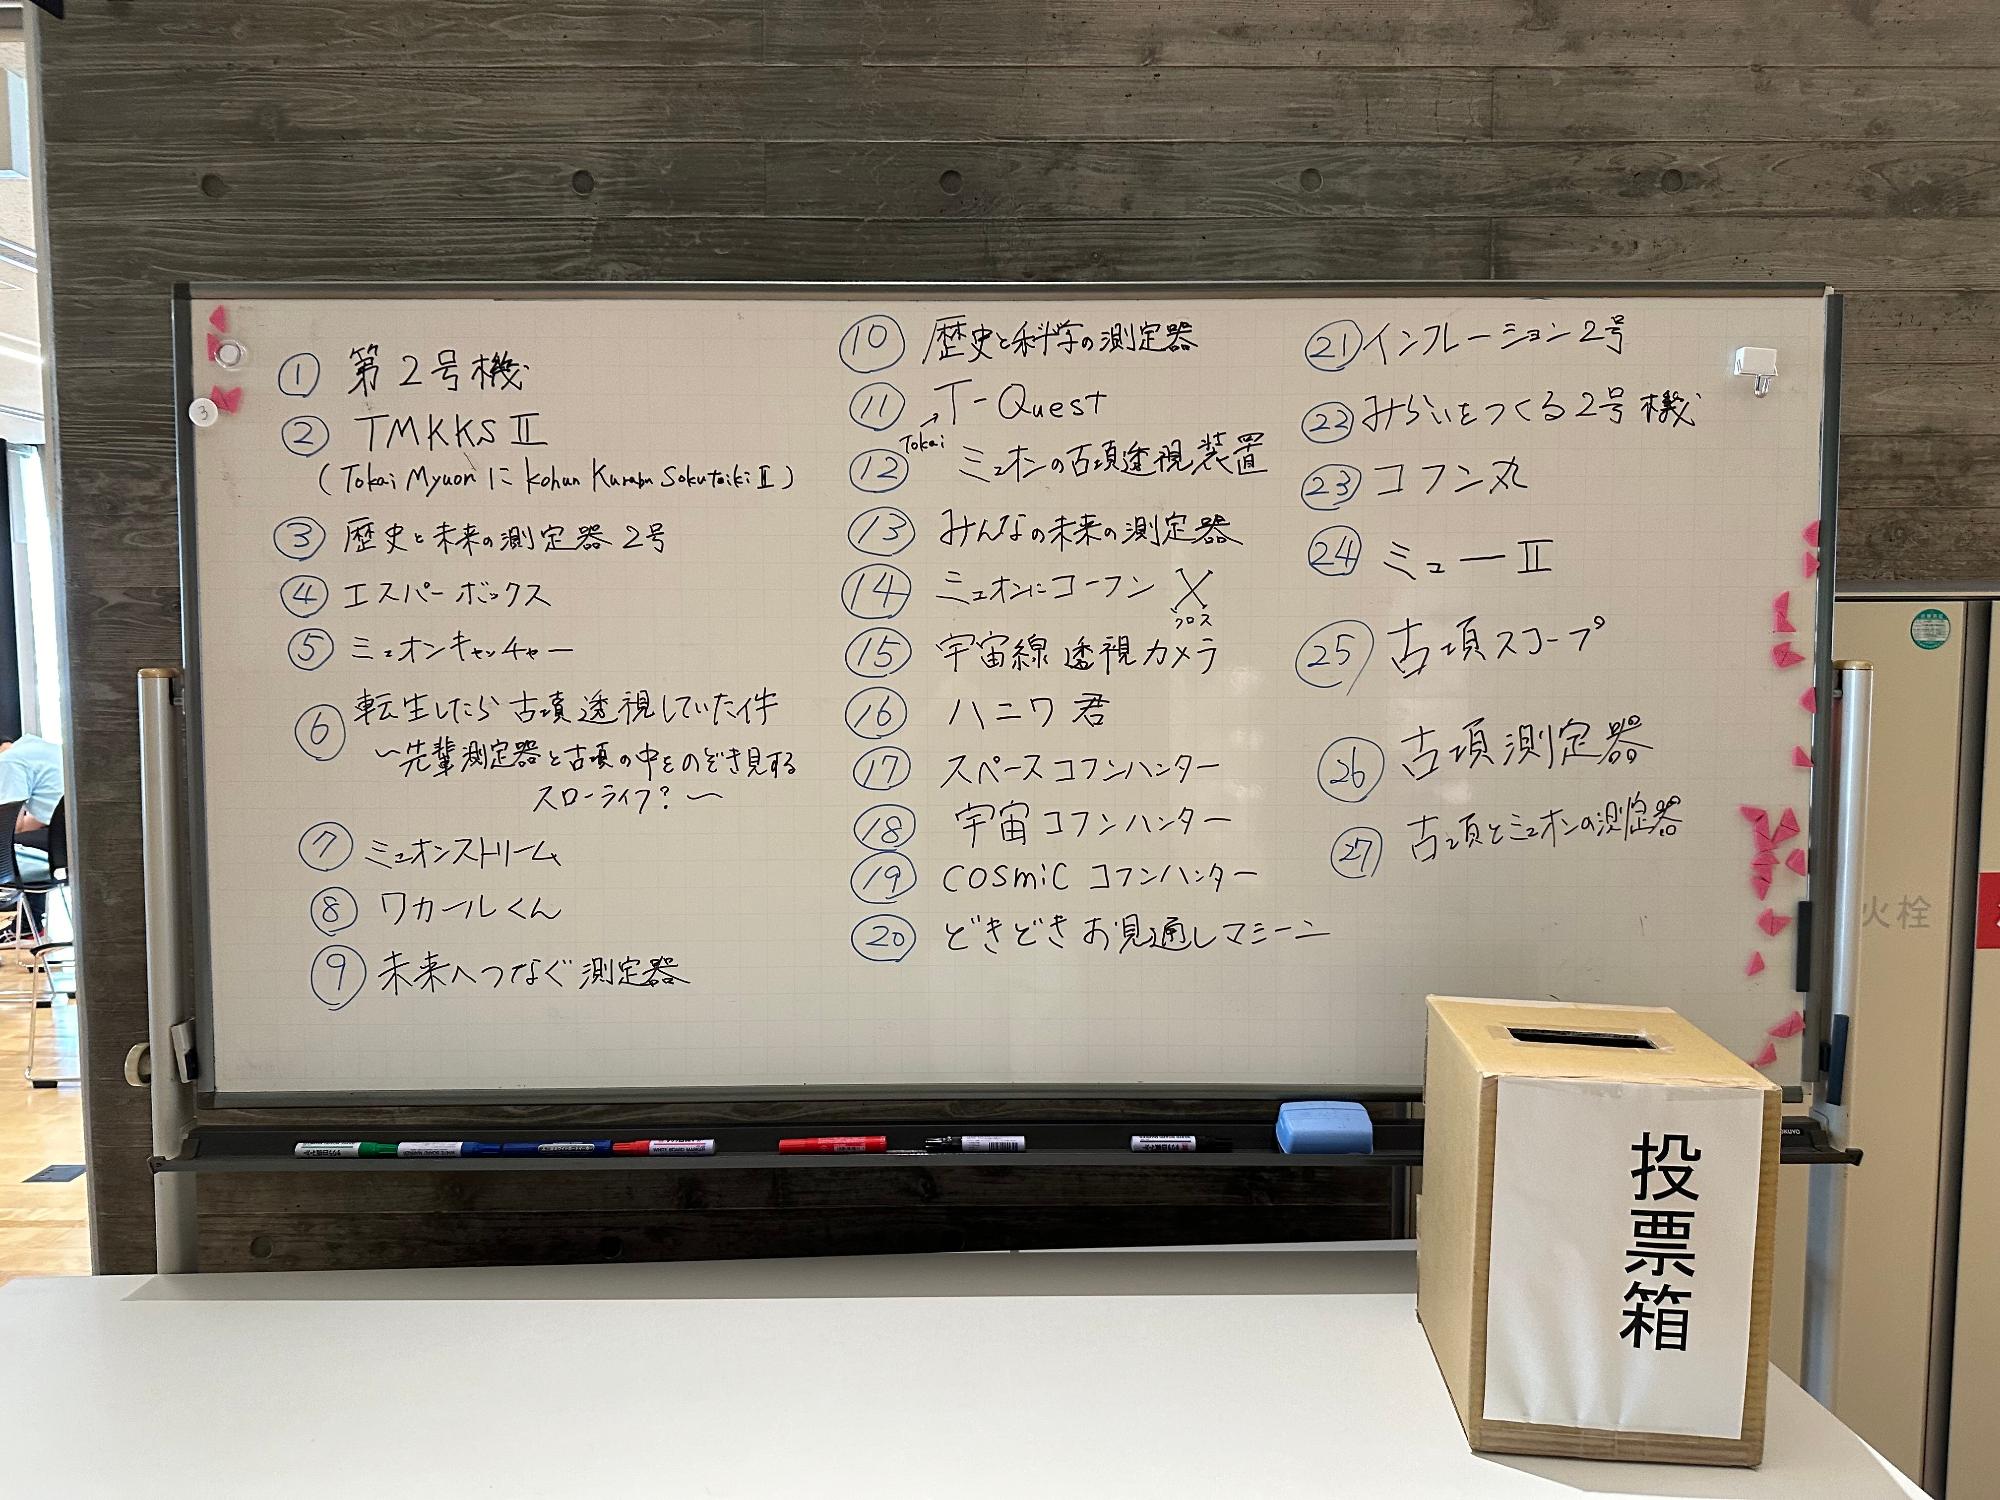 ① 第2号機
② TMKKSⅡ
(Tokai Myuon に Kohun Kurabu SokuteikiⅡ)
③ 歴史と未来の測定器2号
④ エスパーボックス
⑤ ミュオンキャッチャー
⑥ 転生したら古墳透視していた件
〜先輩測定器と古墳の中をのぞき見する
スローライフ?〜
⑦ ミュオンストリーム
⑧ ワカールくん
⑨ 未来へつなぐ測定器
⑩ 歴史と科学の測定器
⑪ T-Quest
Tokai
⑫ ミュオンの古墳透視装置
⑬ みんなの未来の測定器
⑭ ミュオンにコーフン X
クロス
⑮ 宇宙線透視カメラ
⑯ ハニワ君
⑰ スペースコフンハンター
⑱ 宇宙コフンハンター
⑲ COSMiC コフンハンター
⑳ どきどきお見通しマシーン
㉑ インフレーション2号
㉒ みらいをつくる2号機
㉓ コフン丸
㉔ ミューⅡ
㉕ 古墳スコープ
㉖ 古墳測定器
㉗ 古墳とミュオンの測定器
3
火栓
WHITE BOARD MARKER
WHITE BOARD MARKER
KOKUYO
投票箱